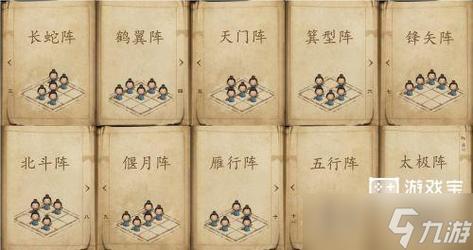 长蛇阵
鹤翼阵
天门阵
箕型阵
锋矢阵
三
四
五
六
七
北斗阵
偃月阵
雁行阵
五行阵
太极阵
八
九
十
游戏宝
九游